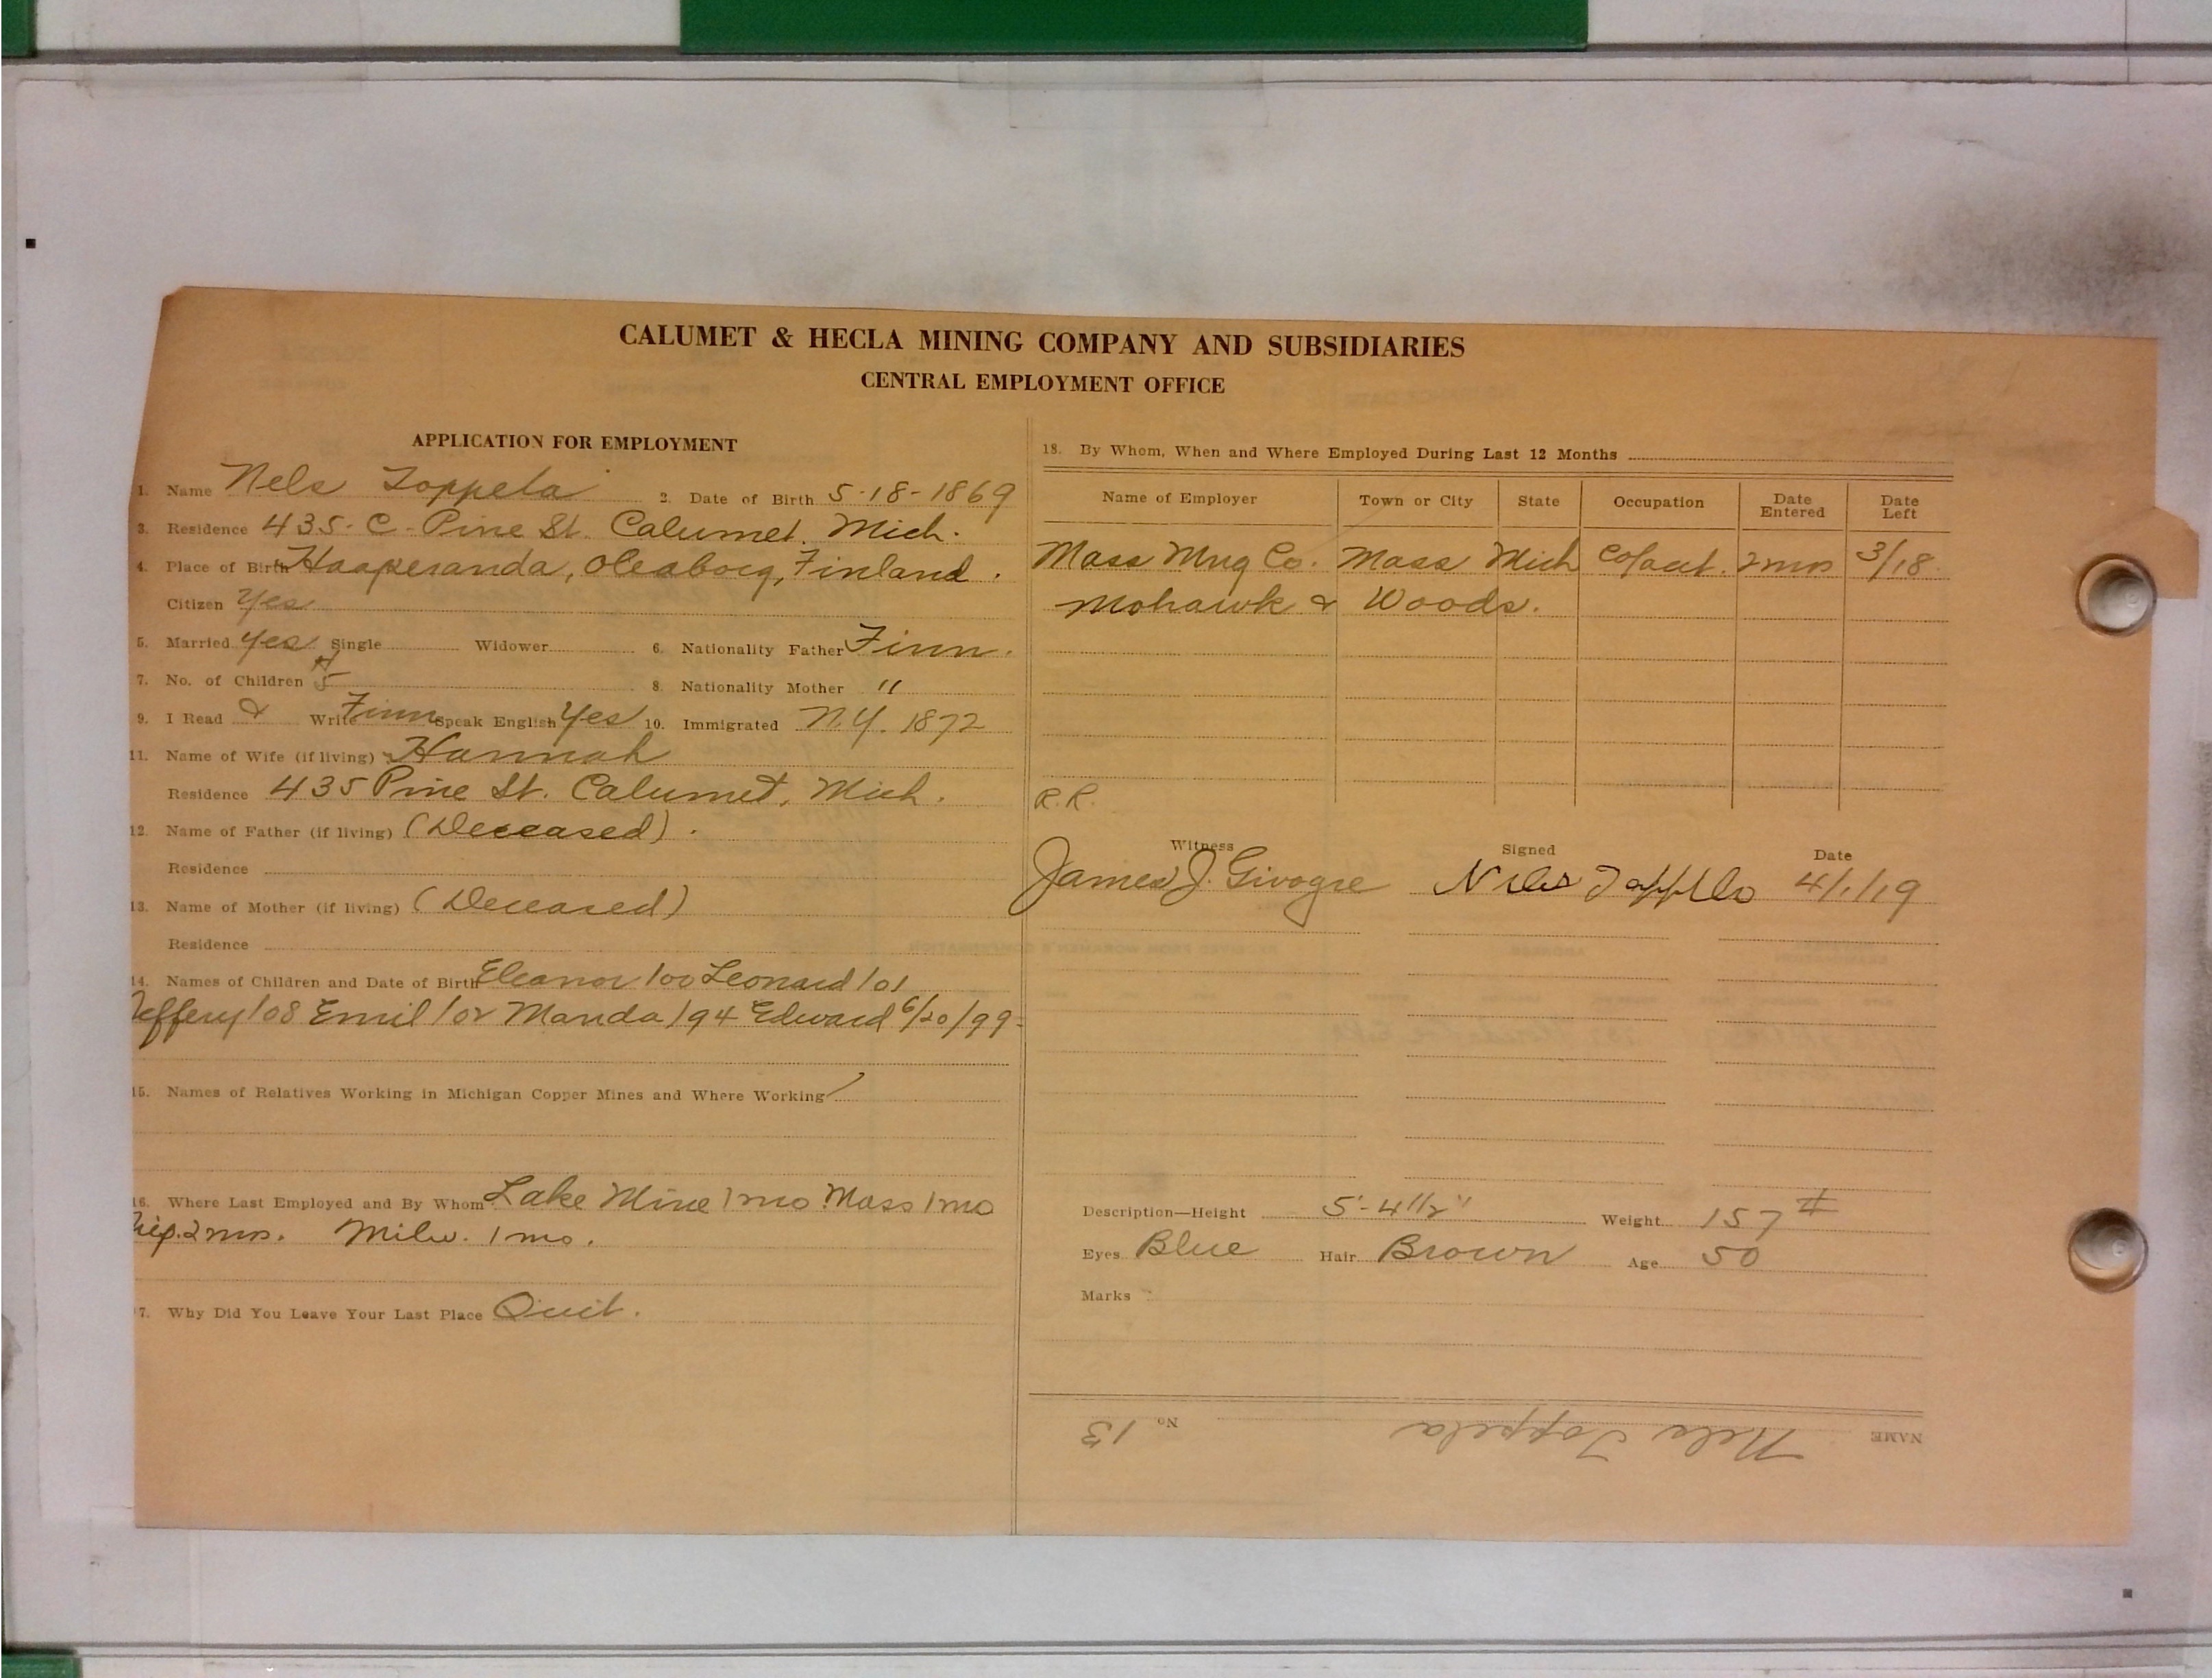 CALUMET & HECLA MINING COMPANY AND SUBSIDIARIES
CENTRAL EMPLOYMENT OFFICE
APPLICATION FOR EMPLOYMENT
1. Name Nels Toppela 2. Date of Birth 5-18-1869
3. Residence 435-C-Pine St. Calumet, Mich.
4. Place of Birth Haaperanda, Oleaborg, Finland.
Citizen Yes
5. Married Yes Single Widower 6. Nationality Father Finn.
7. No. of Children 5 8. Nationality Mother "
9. I Read & Write Finn Speak English Yes 10. Immigrated N.Y. 1872
11. Name of Wife (if living) Hannah
Residence 435 Pine St. Calumet, Mich.
12. Name of Father (if living) (Deceased).
Residence
13. Name of Mother (if living) (Deceased)
Residence
14. Names of Children and Date of Birth Eleanor /00 Leonard /01
Jeffery /08 Emil /02 Manda /94 Edward 6/20/99
15. Names of Relatives Working in Michigan Copper Mines and Where Working /
16. Where Last Employed and By Whom Lake Mine 1 mo. Mass 1 mo
2 mos. Milw. 1 mo.
17. Why Did You Leave Your Last Place Quit.
18. By Whom, When and Where Employed During Last 12 Months
Name of Employer Town or City State Occupation Date Entered Date Left
Mass Mng Co. Mass Mich 2 mos 3/18
Mohawk & Woods.
R.R.
Witness Signed Date
James J. Givogre Niles Toppello 4/1/19
Description—Height 5'-4 1/2" Weight 157 #
Eyes Blue Hair Brown Age 50
Marks
NAME Nels Toppela No. 13